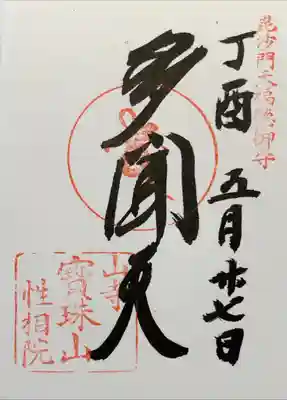 毘沙門天福徳御守
丁酉 五月廿七日
多聞天
山寺
寳珠山
性相院